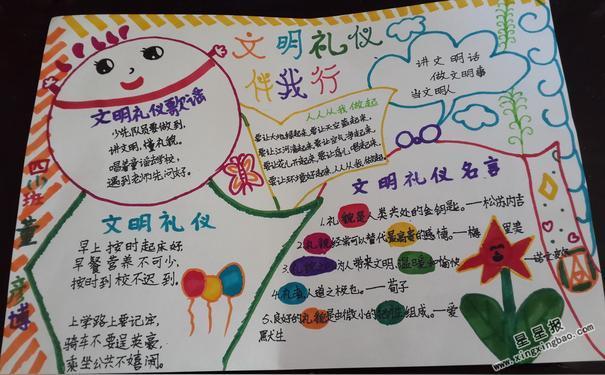 文明礼仪
伴我行
讲文明话
做文明事
当文明人
文明礼仪歌谣
少先队员要做到,
讲文明,懂礼貌。
唱着童谣去学校,
遇到老师先问好。
人人从我做起
要让大地绿起来,要让天空蓝起来,
要让江河清起来,要让空气净起来,
要让环境好起来,人人从我做起。
四(1)班 董彦博
文明礼仪
早上按时起床好
早餐营养不可少,
按时到校不迟到.
上学路上要记牢,
骑车不要逞英豪,
乘坐公共不嬉闹。
文明礼仪名言
1.礼貌是人类共处的金钥匙。——松苏内吉
2.礼貌经常可以替代最高贵的感情。——梅里美
3.礼貌为人带来文明,温暖和愉快
4.礼者,人道之极也。——荀子
5.良好的礼貌是由微小的牺牲组成。——爱
默生
星星报
www.xingxingbao.com